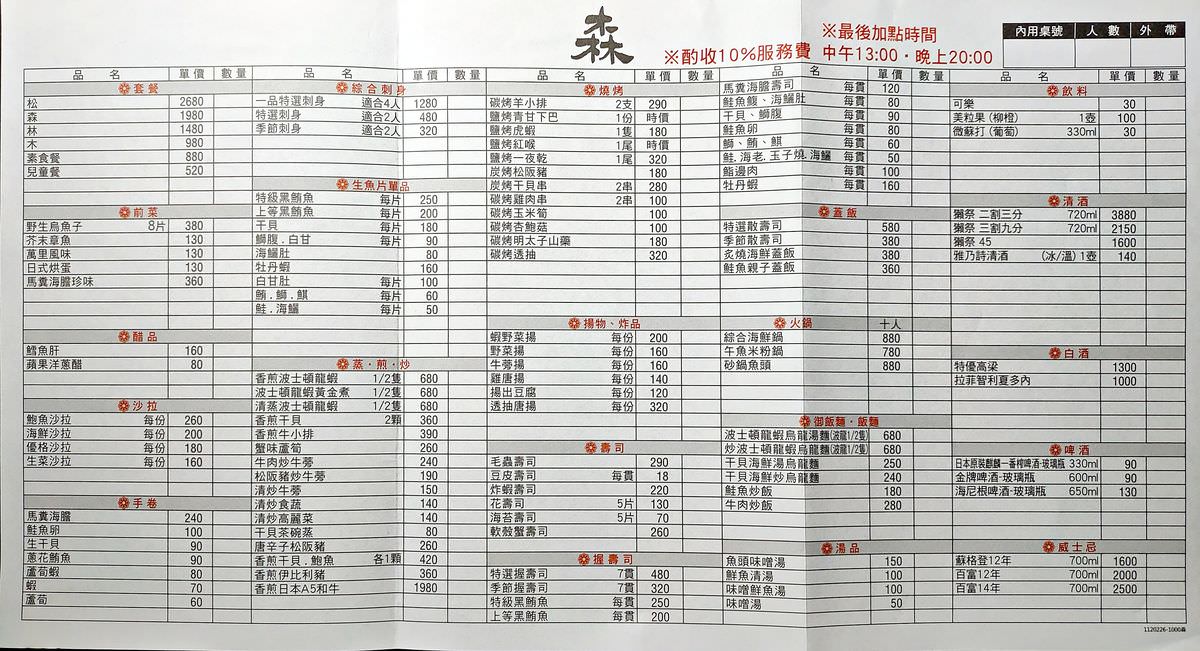 森
※酌收10%服務費
※最後加點時間
中午13:00·晚上20:00
內用桌號 人數 外帶
品名 單價 數量
套餐
松 2680
森 1980
林 1480
木 980
素食餐 880
兒童餐 520
前菜
野生烏魚子 8片 380
芥末章魚 130
萬里風味 130
日式烘蛋 130
馬糞海膽珍味 360
醋品
鱈魚肝 160
蘋果洋蔥醋 80
沙拉
鮑魚沙拉 每份 260
海鮮沙拉 每份 200
優格沙拉 每份 180
生菜沙拉 每份 160
手卷
馬糞海膽 240
鮭魚卵 100
生干貝 90
蔥花鮪魚 90
蘆筍蝦 80
蝦 70
蘆筍 60
品名 單價 數量
綜合刺身
一品特選刺身 適合4人 1280
特選刺身 適合2人 480
季節刺身 適合2人 320
生魚片單品
特級黑鮪魚 每片 250
上等黑鮪魚 每片 200
干貝 每片 180
鰤腹.白甘 每片 90
海鱺肚 80
牡丹蝦 160
白甘肚 每片 100
鮪.鰤.鯕 每片 60
鮭.海鱺 每片 50
蒸·煎·炒
香煎波士頓龍蝦 1/2隻 680
波士頓龍蝦黃金煮 1/2隻 680
清蒸波士頓龍蝦 1/2隻 680
香煎干貝 2顆 360
香煎牛小排 390
蟹味蘆筍 260
牛肉炒牛蒡 240
松阪豬炒牛蒡 190
清炒牛蒡 150
清炒食蔬 140
清炒高麗菜 140
干貝茶碗蒸 80
唐辛子松阪豬 260
香煎干貝.鮑魚 各1顆 420
香煎伊比利豬 360
香煎日本A5和牛 1980
品名 單價 數量
燒烤
碳烤羊小排 2支 290
鹽烤青甘下巴 1份 時價
鹽烤虎蝦 1隻 180
鹽烤紅喉 1尾 時價
鹽烤一夜乾 1尾 320
炭烤松阪豬 180
炭烤干貝串 2串 280
碳烤雞肉串 2串 100
碳烤玉米筍 100
碳烤杏鮑菇 100
碳烤明太子山藥 180
碳烤透抽 320
揚物、炸品
蝦野菜揚 每份 200
野菜揚 每份 160
牛蒡揚 每份 160
雞唐揚 每份 140
揚出豆腐 每份 120
透抽唐揚 每份 320
壽司
毛蟲壽司 290
豆皮壽司 每貫 18
炸蝦壽司 220
花壽司 5片 130
海苔壽司 5片 70
軟殼蟹壽司 260
握壽司
特選握壽司 7貫 480
季節握壽司 7貫 320
特級黑鮪魚 每貫 250
上等黑鮪魚 每貫 200
品名 單價 數量
馬糞海膽壽司 每貫 120
鮭魚鰻、海鱺肚 每貫 80
干貝、鰤腹 每貫 90
鮭魚卵 每貫 80
鰤、鮪、鯕 每貫 60
鮭.海老.玉子燒.海鱺 每貫 50
鮨邊肉 每貫 100
牡丹蝦 每貫 160
蓋飯
特選散壽司 580
季節散壽司 380
炙燒海鮮蓋飯 380
鮭魚親子蓋飯 360
火鍋 十人
綜合海鮮鍋 880
午魚米粉鍋 780
砂鍋魚頭 880
御飯麵·飯麵
波士頓龍蝦烏龍湯麵(波龍1/2隻) 680
炒波士頓龍蝦烏龍麵(波龍1/2隻) 680
干貝海鮮湯烏龍麵 250
干貝海鮮炒烏龍麵 240
鮭魚炒飯 180
牛肉炒飯 280
湯品
魚頭味噌湯 150
鮮魚清湯 100
味噌鮮魚湯 100
味噌湯 50
品名 單價 數量
飲料
可樂 30
美粒果(柳橙) 1壺 100
微蘇打(葡萄) 330ml 30
清酒
獺祭 二割三分 720ml 3880
獺祭 三割九分 720ml 2150
獺祭 45 1600
雅乃詩清酒 (冰/溫)1壺 140
白酒
特優高梁 1300
拉菲智利夏多內 1000
啤酒
日本原裝麒麟一番榨啤酒-玻璃瓶 330ml 90
金牌啤酒-玻璃瓶 600ml 90
海尼根啤酒-玻璃瓶 650ml 130
威士忌
蘇格登12年 700ml 1600
百富12年 700ml 2000
百富14年 700ml 2500
1120226-1000森